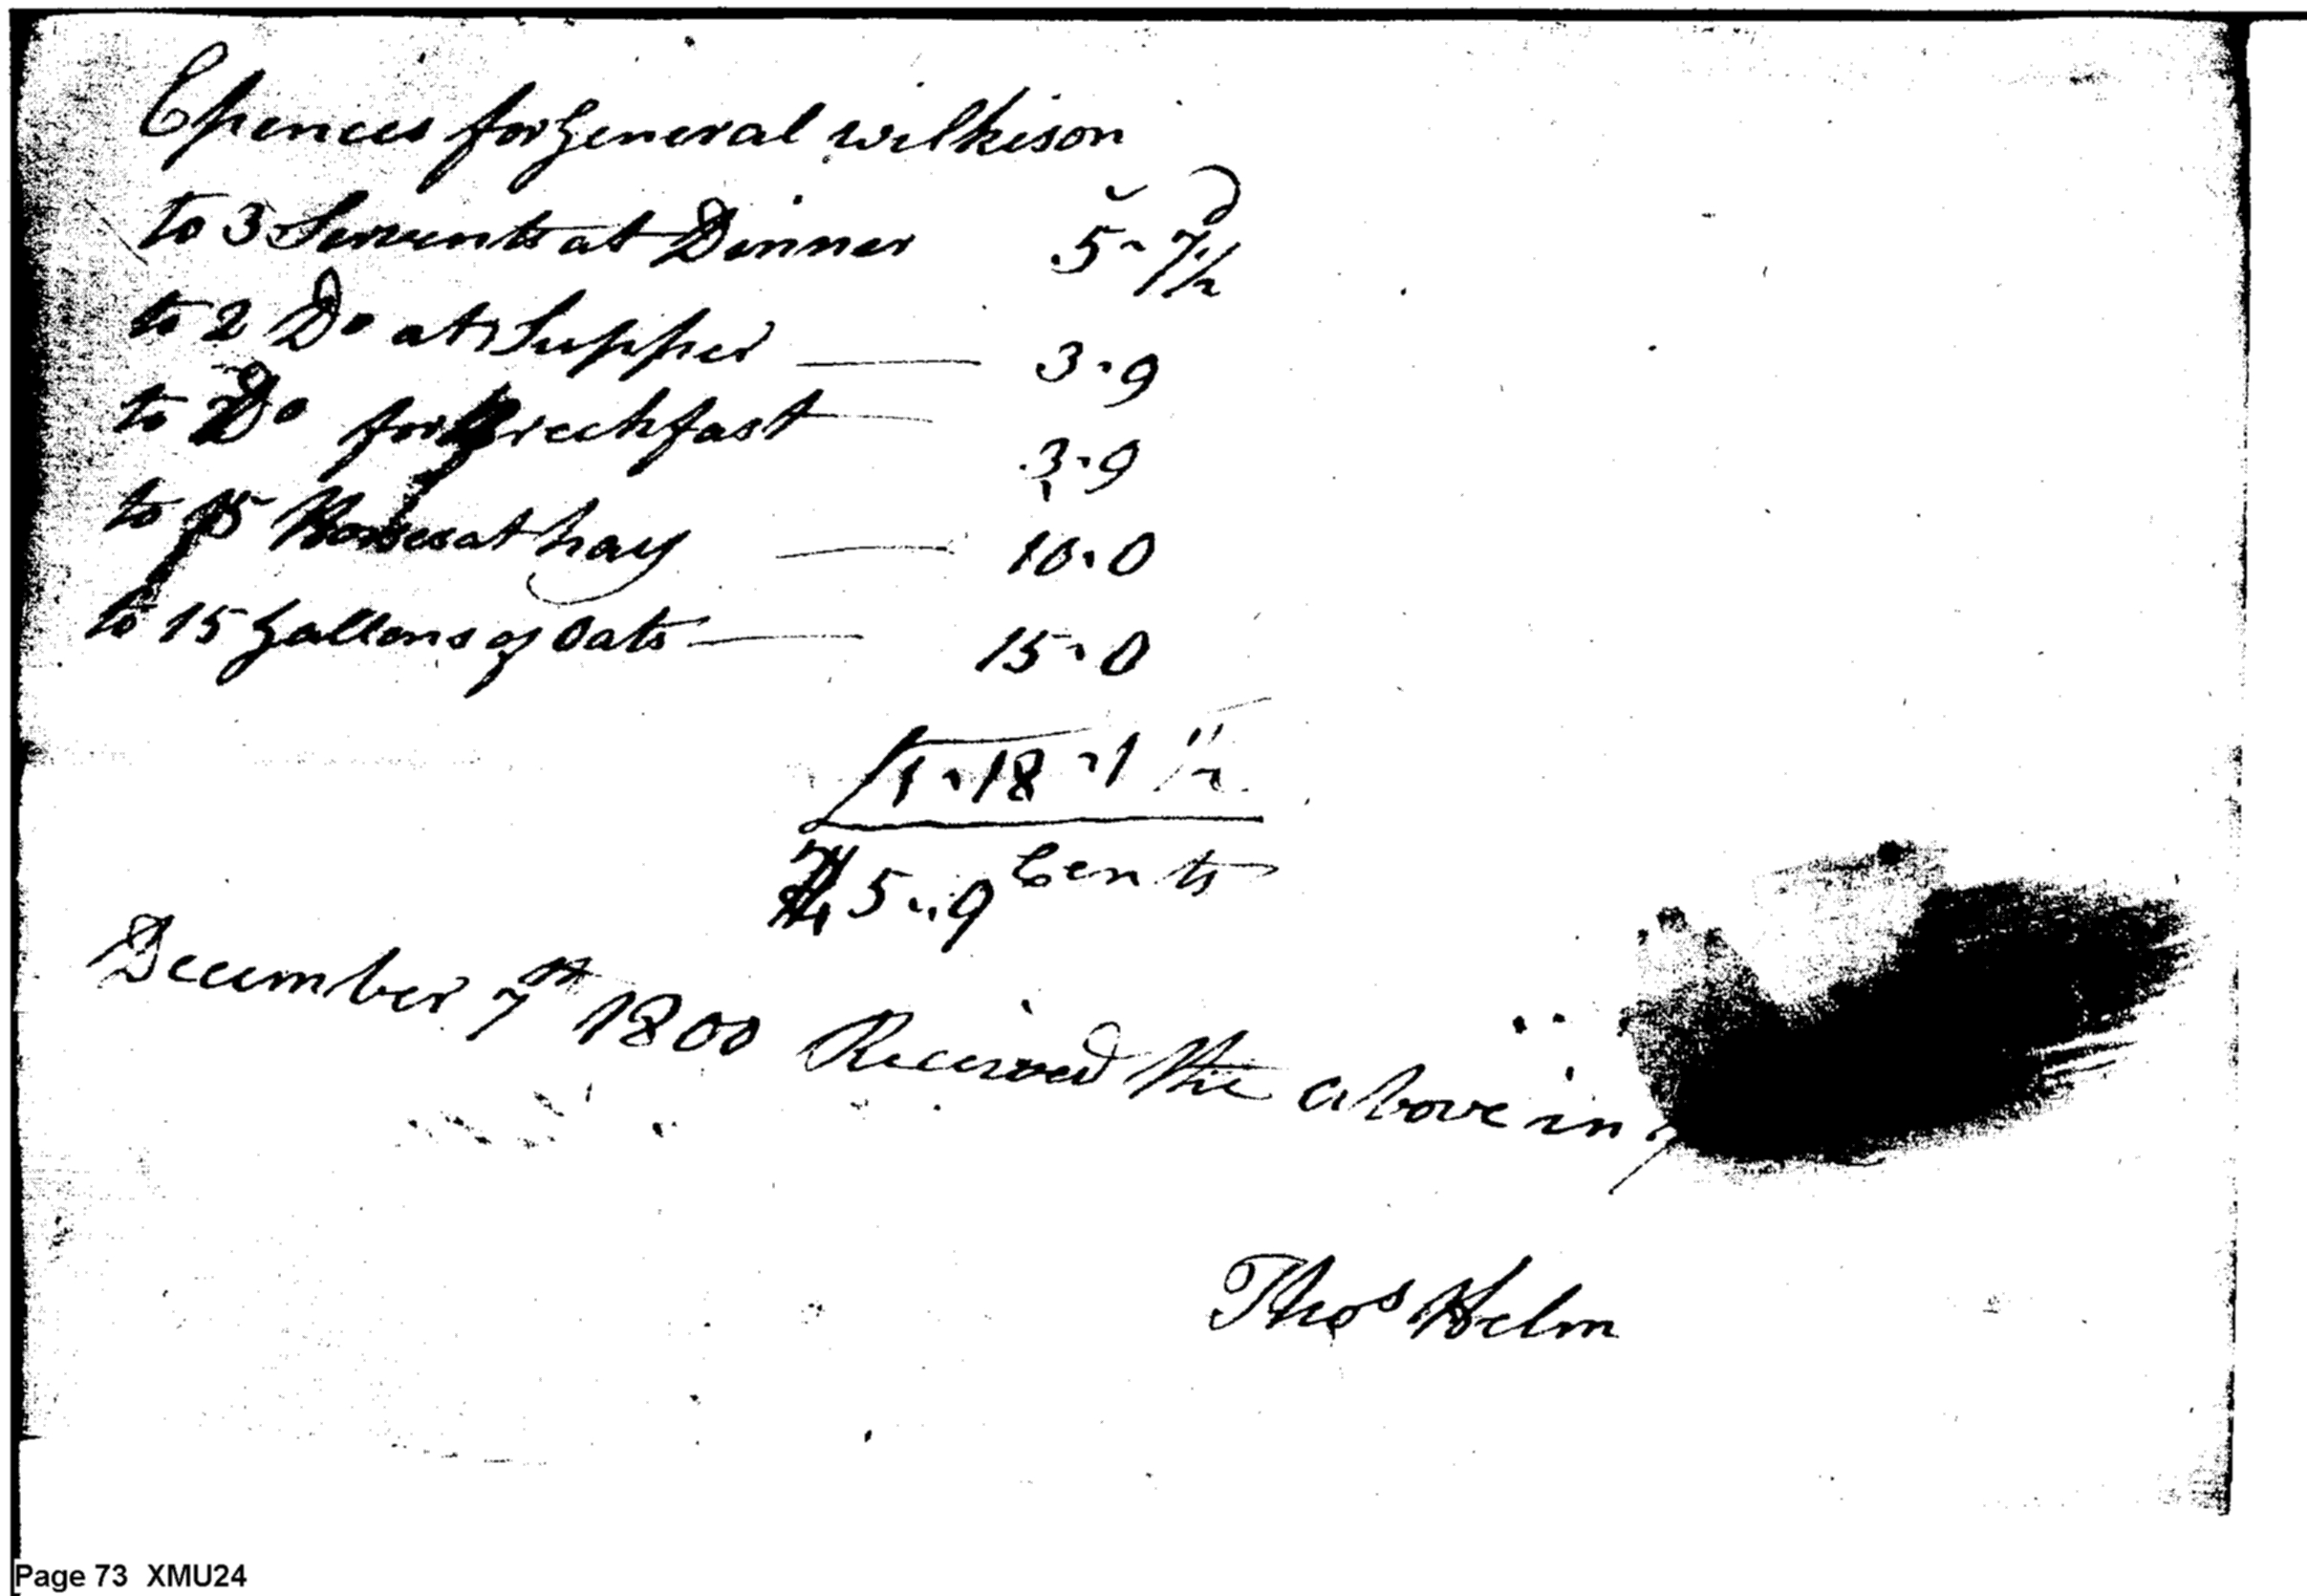 Epences for General wilkison
s D
to 3 Servents at Dinner 5-7½
to 2 Do at Supper — 3-9
to Do for Breckfast — 3-9
to 15 Horses at hay — 10-0
to 15 Gallons of Oats — 15-0
£1-18-1½
5-9 Cents
December 7th 1800 Received the above in
Thos Helm
Page 73 XMU24